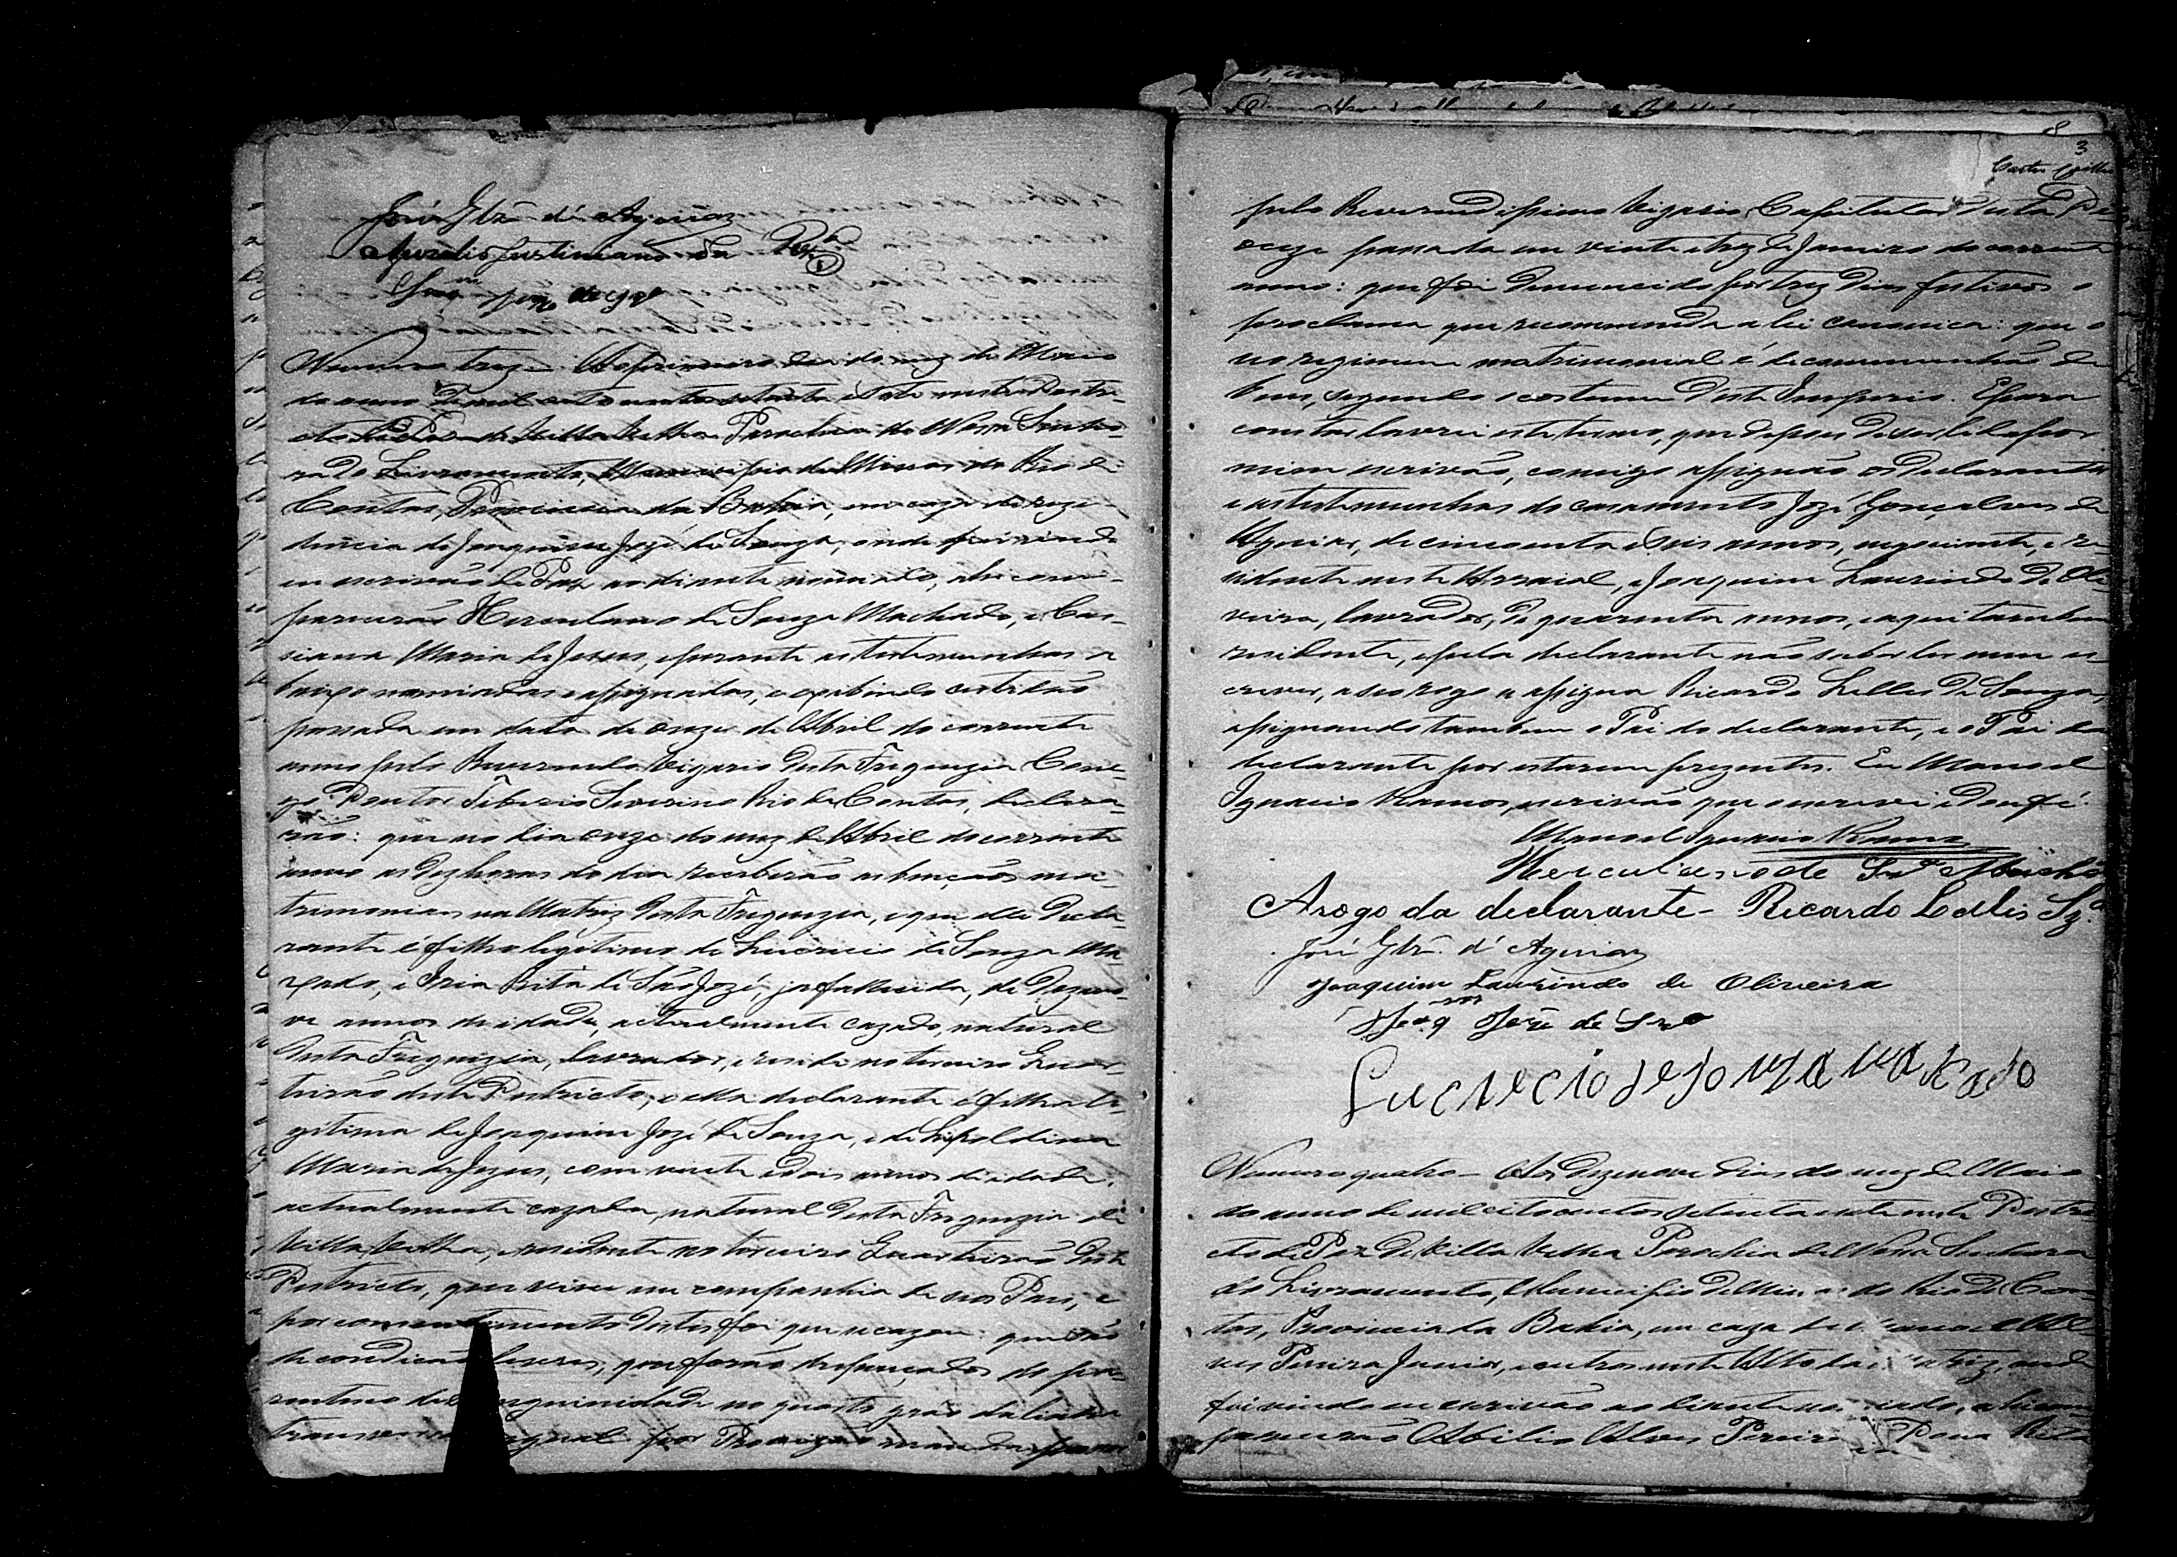 José Glz. d'Aguiar
Aurelio Justiniano da
Numero trez. Ao primeiro dia do mez de Maio
do anno de mil oito centos setenta e sete neste Destri-
cto de Paz de Villa Velha Parochia de Nossa Senho-
ra do Livramento, Municipio de Minas do Rio de
Contas, Provincia da Bahia, em caza de rezi-
dencia de Joaquim José de Souza, onde fui vindo
eu escrivão de Paz ao diante nomiado, ahi com-
parecerão Herculano de Souza Machado, e Cas-
siana Maria de Jesus, e perante as testemunhas a-
baixo nomiadas e assignadas, e exibindo certidão
passada em data de onze de Abril do corrente
anno pelo Reverendo Vigario desta Freguezia Cone-
go Doutor Tiburio Severino Rio de Contas, declara-
rão: que no dia onze do mez de Abril do corrente
anno as dez horas do dia receberão as bençãos ma-
trimoniaes na Matriz desta Freguezia, e que elle decla-
rante é filho legitimo de Lucrecio de Souza Ma-
xado, e Iria Rita de São José, ja fallecida, de dezano-
ve annos de idade, actualmente cazado, natural
desta Freguezia, lavrador, e reside no terceiro Quar-
teirão deste Destricto, e ella declarante é filha le-
gitima de Joaquim José de Souza, e de Lipoldina
Maria de Jezus, com vinte e dois annos de idade,
actualmente cazada, natural desta Freguezia de
Villa Velha, e residente no terceiro Quarteirão deste
Destricto, que vive em companhia de seos Pais, e
por consentimento destes foi que se cazou: que são
de condição livres, que forão despençados do pa-
rentesco de sanguinidade no quarto grao da linha
transversal igual por Provizão mandada passar
8
3
pelo Reverendissimo Vigario Capitular desta
oceze passada em vinte e trez de Janeiro do corrente
anno: que foi denunciado por trez dias festivos o
proclama que recommenda a lei canonica: que o
seo regimen matrimonial é de communhão de
bens, segundo o costume deste Imperio. E para
constar lavrei este termo, que depois de ser lido por
mim escrivão, comigo assignão os declarantes
e as testemunhas do casamento José Gonçalves de
Aguiar, de cincoenta e seis annos, negociante, e re-
sidente neste Arraial, e Joaquim Laurindo de Oli-
veira, lavrador, de quarenta annos, e aqui tambem
residente, e pela declarante não saber ler nem es-
crever, a seo rogo a assigna Ricardo Lelles de Souza,
assignando tambem o Pai do declarante, e o Pai da
declarante por estarem prezentes. Eu Manoel
Ignacio Ramos, escrivão que o escrevi e dou fé.
Manoel Ignacio Ramos
Herculano de Sza Machdo
Arogo da declarante - Ricardo Lellis Sza
José Glz. d'Aguiar
Joaquim Laurindo de Oliveira
Joaqm José de Sza
Lucrecio de Souza maxado
Numero quatro - Aos dezenove dias do mez de Maio
do anno de mil oito centos setenta e sete neste Destri-
cto de Paz de Villa Velha Parochia de Nossa Senhora
do Livramento, Municipio de Minas do Rio de Con-
tas, Provincia da Bahia, em caza de Manoel Al-
ves Pereira Junior, e outros neste Alto da Matriz, onde
fui vindo eu escrivão ao diante nomiado, ahi com-
parecerão Abilio Alves Pereira e Dona Rita